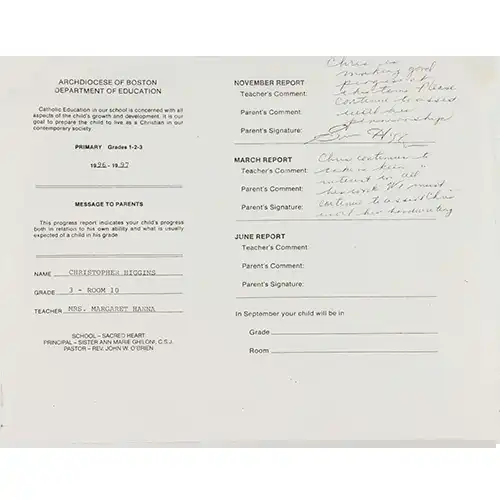 ARCHDIOCESE OF BOSTON
DEPARTMENT OF EDUCATION
Catholic Education in our school is concerned with all
aspects of the child's growth and development. It is our
goal to prepare the child to live as a Christian in our
contemporary society.
PRIMARY Grades 1-2-3
1996-1997
MESSAGE TO PARENTS
This progress report indicates your child's progress
both in relation to his own ability and what is usually
expected of a child in his grade
NAME CHRISTOPHER HIGGINS
GRADE 3 - ROOM 10
TEACHER MRS. MARGARET HANNA
SCHOOL – SACRED HEART
PRINCIPAL – SISTER ANN MARIE GHILONI, C.S.J.
PASTOR – REV. JOHN W. O'BRIEN
NOVEMBER REPORT
Teacher's Comment: Chris is
making good
progress at
this time. Please
continue to assist
Parent's Comment: with his
penmanship
Parent's Signature:
MARCH REPORT
Teacher's Comment: Chris continues to
take a keen
interest in all
Parent's Comment: his work. We must
Parent's Signature: continue to assist Chris
with his handwriting
JUNE REPORT
Teacher's Comment:
Parent's Comment:
Parent's Signature:
In September your child will be in
Grade
Room